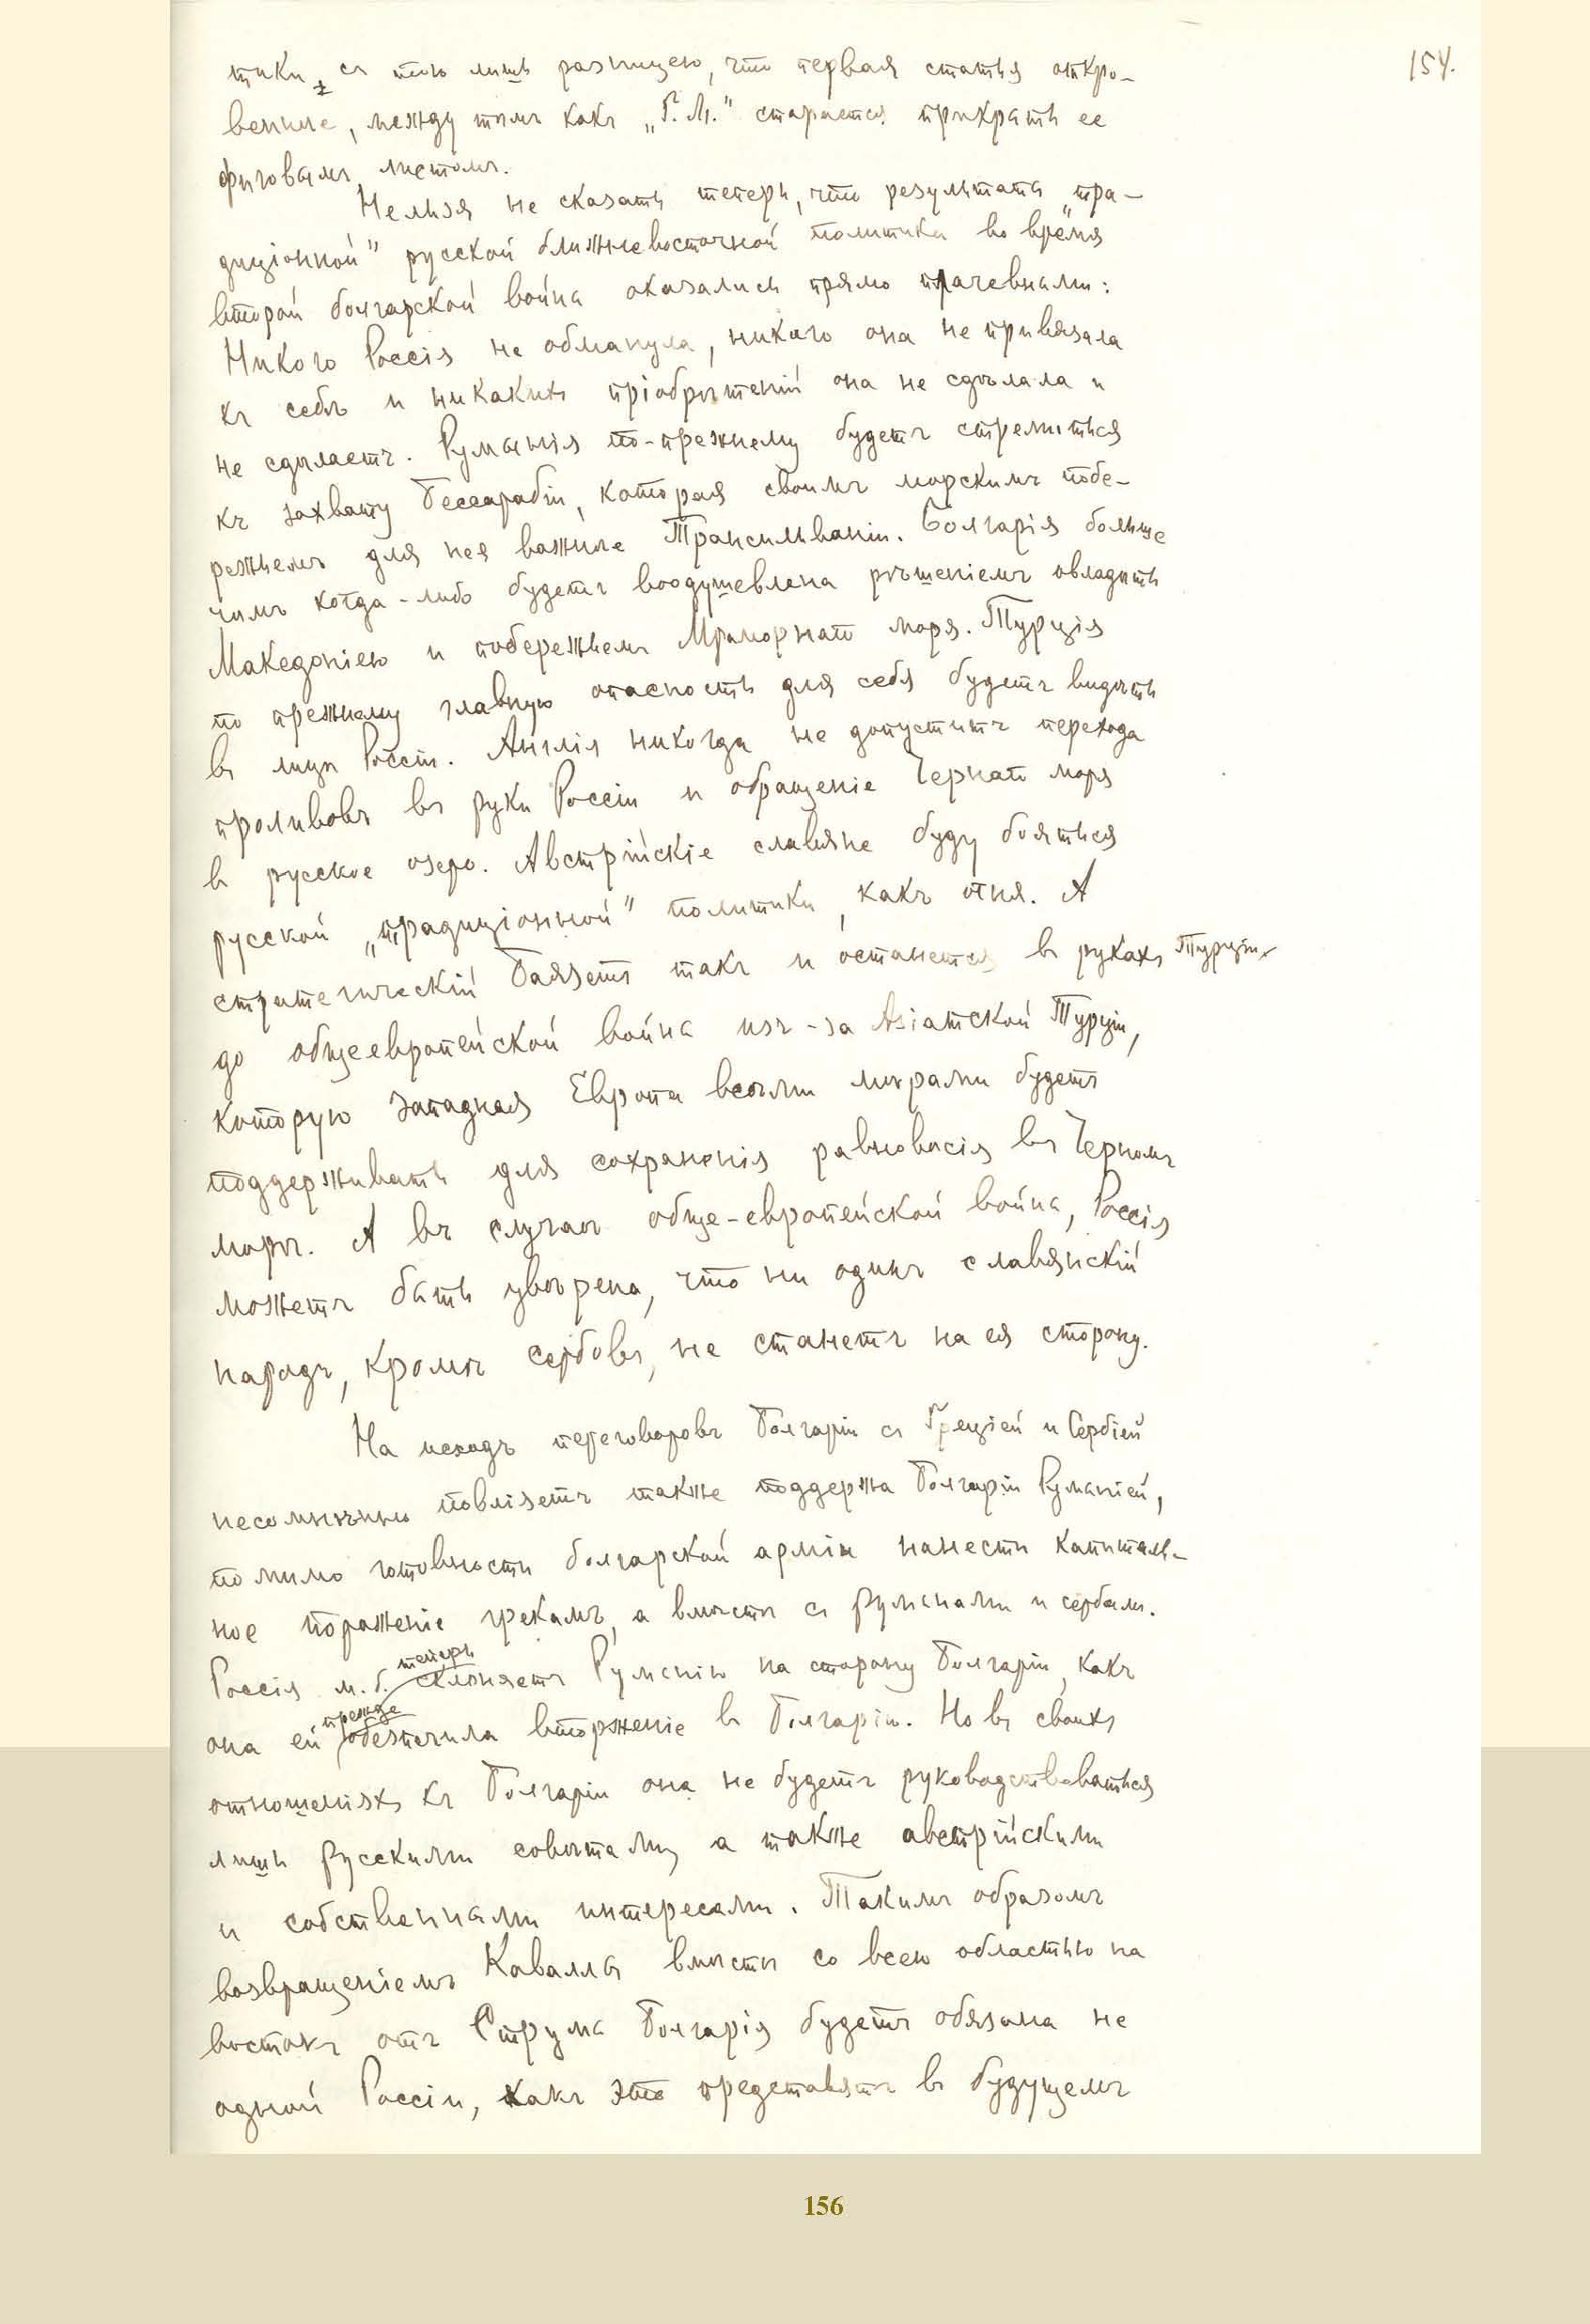 154.
тики, съ тою лишь разницею, что первая статья откро-
веннѣе, между тѣмъ какъ „Г. М." старается прикрыть ее
фиговымъ листомъ.
Нельзя не сказать теперь, что результаты „тра-
диціонной" русской ближневосточной политики во время
второй болгарской войны оказались прямо плачевными:
Никого Россія не обманула, никого она не привязала
къ себѣ и никакихъ пріобрѣтеній она не сдѣлала и
не сдѣлаетъ. Румынія по-прежнему будетъ стремиться
къ захвату Бессарабіи, которая своимъ морскимъ побе-
режьемъ для нея важнѣе Трансильваніи. Болгарія больше
чѣмъ когда-либо будетъ воодушевлена рѣшеніемъ овладѣть
Македоніею и побережьемъ Мраморнаго моря. Турція
по прежнему главную опасность для себя будетъ видѣть
въ лицѣ Россіи. Англія никогда не допуститъ перехода
проливовъ въ руки Россіи и обращеніе Чернаго моря
в русское озеро. Австрійскіе славяне буду бояться
русской „традиціонной" политики, какъ огня. А
стратегическій Баязетъ такъ и останется въ рукахъ Турціи
до общеевропейской войны изъ-за Азіатской Турціи,
которую Западная Европа всѣми мѣрами будетъ
поддерживать для сохраненія равновѣсія въ Черномъ
морѣ. А въ случаѣ обще-европейской войны, Россія
можетъ быть увѣрена, что ни одинъ славянскій
народъ, кромѣ сербовъ, не станетъ на ея сторону.
На исходъ переговоровъ Болгаріи съ Греціей и Сербіей
несомнѣнно повліяетъ также поддержа Болгаріи Румыніей,
помимо готовности болгарской арміи нанести капиталь-
ное пораженіе грекамъ, а вмѣстѣ съ румынами и сербами.
теперь
Россія м. б. склоняетъ Румынію на сторону Болгаріи, какъ
прежде
она ей обезпечила вторженіе в Болгарію. Но въ своихъ
отношеніяхъ къ Болгаріи она не будетъ руководствоваться
лишь русскими совѣтами, а также австрійскими
и собственными интересами. Такимъ образомъ
возвращеніемъ Каваллы вмѣстѣ со всею областью на
востокъ отъ Струмы Болгарія будетъ обязана не
одной Россіи, какъ это представятъ въ будущемъ
156